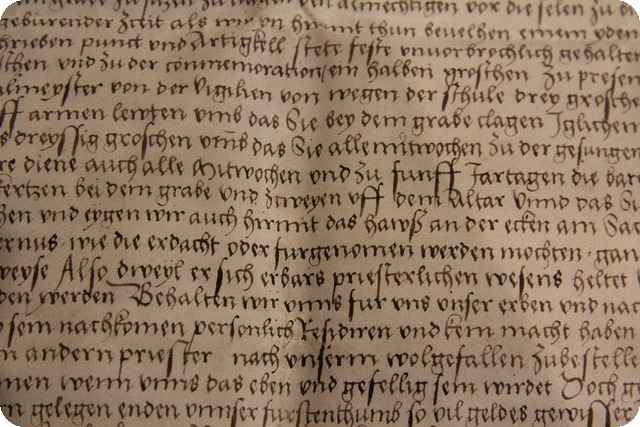 almechtigen vor die selen zu
geburender Zceit als wir in hirmit thun bevelhen einem yden
schrieben punct und Artigkell stete feste unvorbrochlich gehalten
schen und zu der commemoration ein halben groschen zu presen
ulmeyster von der Vigilien von wegen der schule drey grosche
uff armen lewten umb das Sie bey dem grabe clagen Iglichen
s dreyssig groschen umb das Sie alle mitwochen zu der gesungen
re diene auch alle Mitwochen und zu funff Jartagen die bare
Kertzen bei dem grabe und zweyen uff dem Altar Unnd das Si
hen und eygen wir auch hirmit das hawß an der ecken am Sac
ernus wie die erdacht oder furgenomen werden mochten gan
weyse Also dweyl er sich erbars priesterlichen wesens heltet
den werden Behalten wir unns fur uns unser erben und nac
sein nachkomen personlich Residiren und kein macht haben
n andern priester nach unserm wolgefallen zubestelle
men wenn unns das eben und gefellig sein wirdet Doch ge
n gelegen enden unnser furstenthumb so vil geldes gewisser